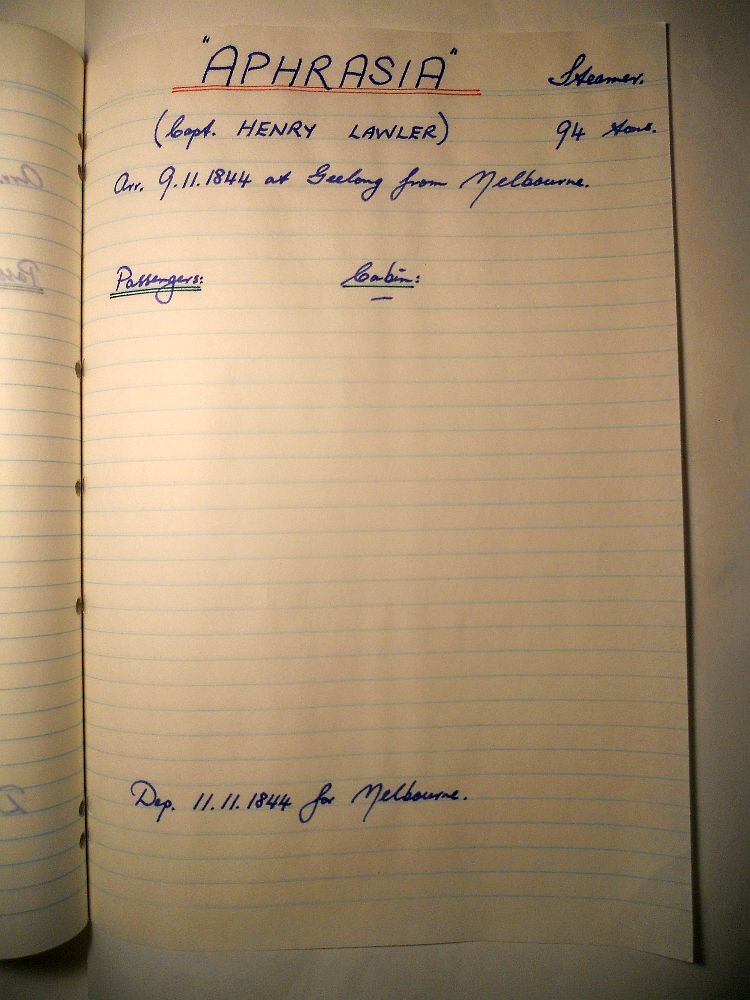 "APHRASIA" Steamer.
(Capt. HENRY LAWLER) 94 tons.
Arr. 9.11.1844 at Geelong from Melbourne.
Passengers: Cabin:
—
Dep. 11.11.1844 for Melbourne.